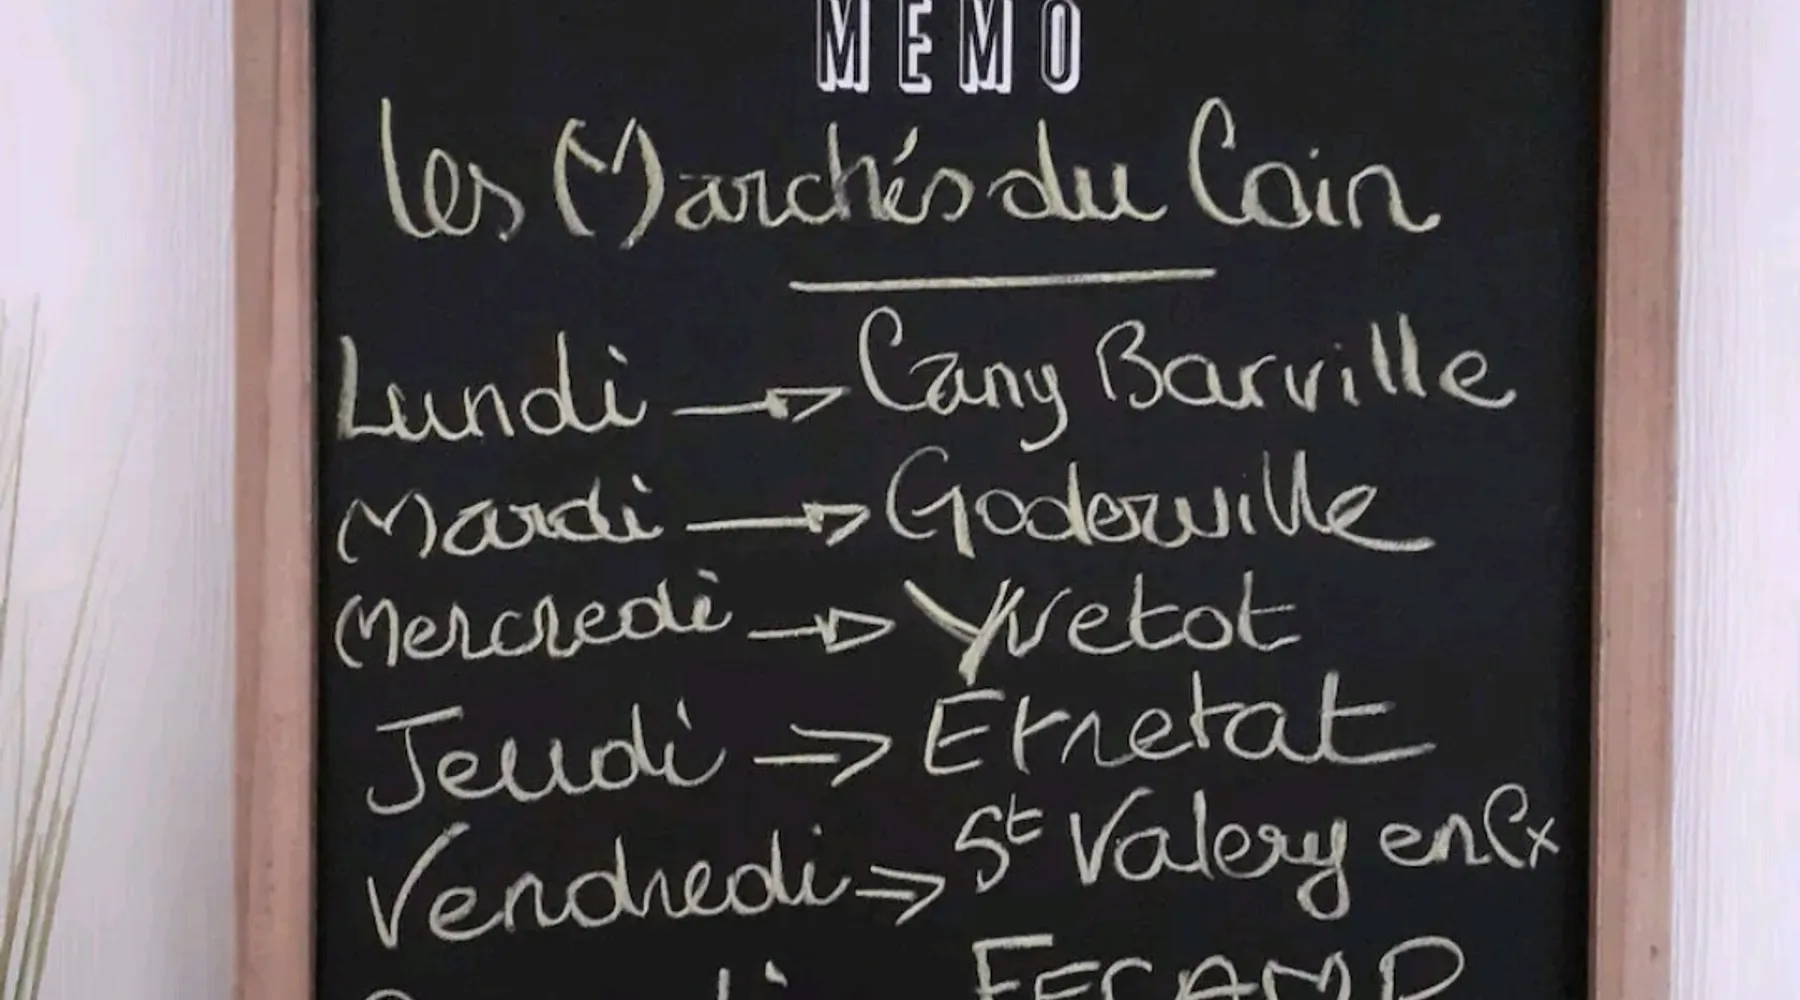 MEMO
Les Marchés du Coin
Lundi → Cany Barville
Mardi → Goderville
Mercredi → Yvetot
Jeudi → Etretat
Vendredi → St Valery en Cx
FECAMP